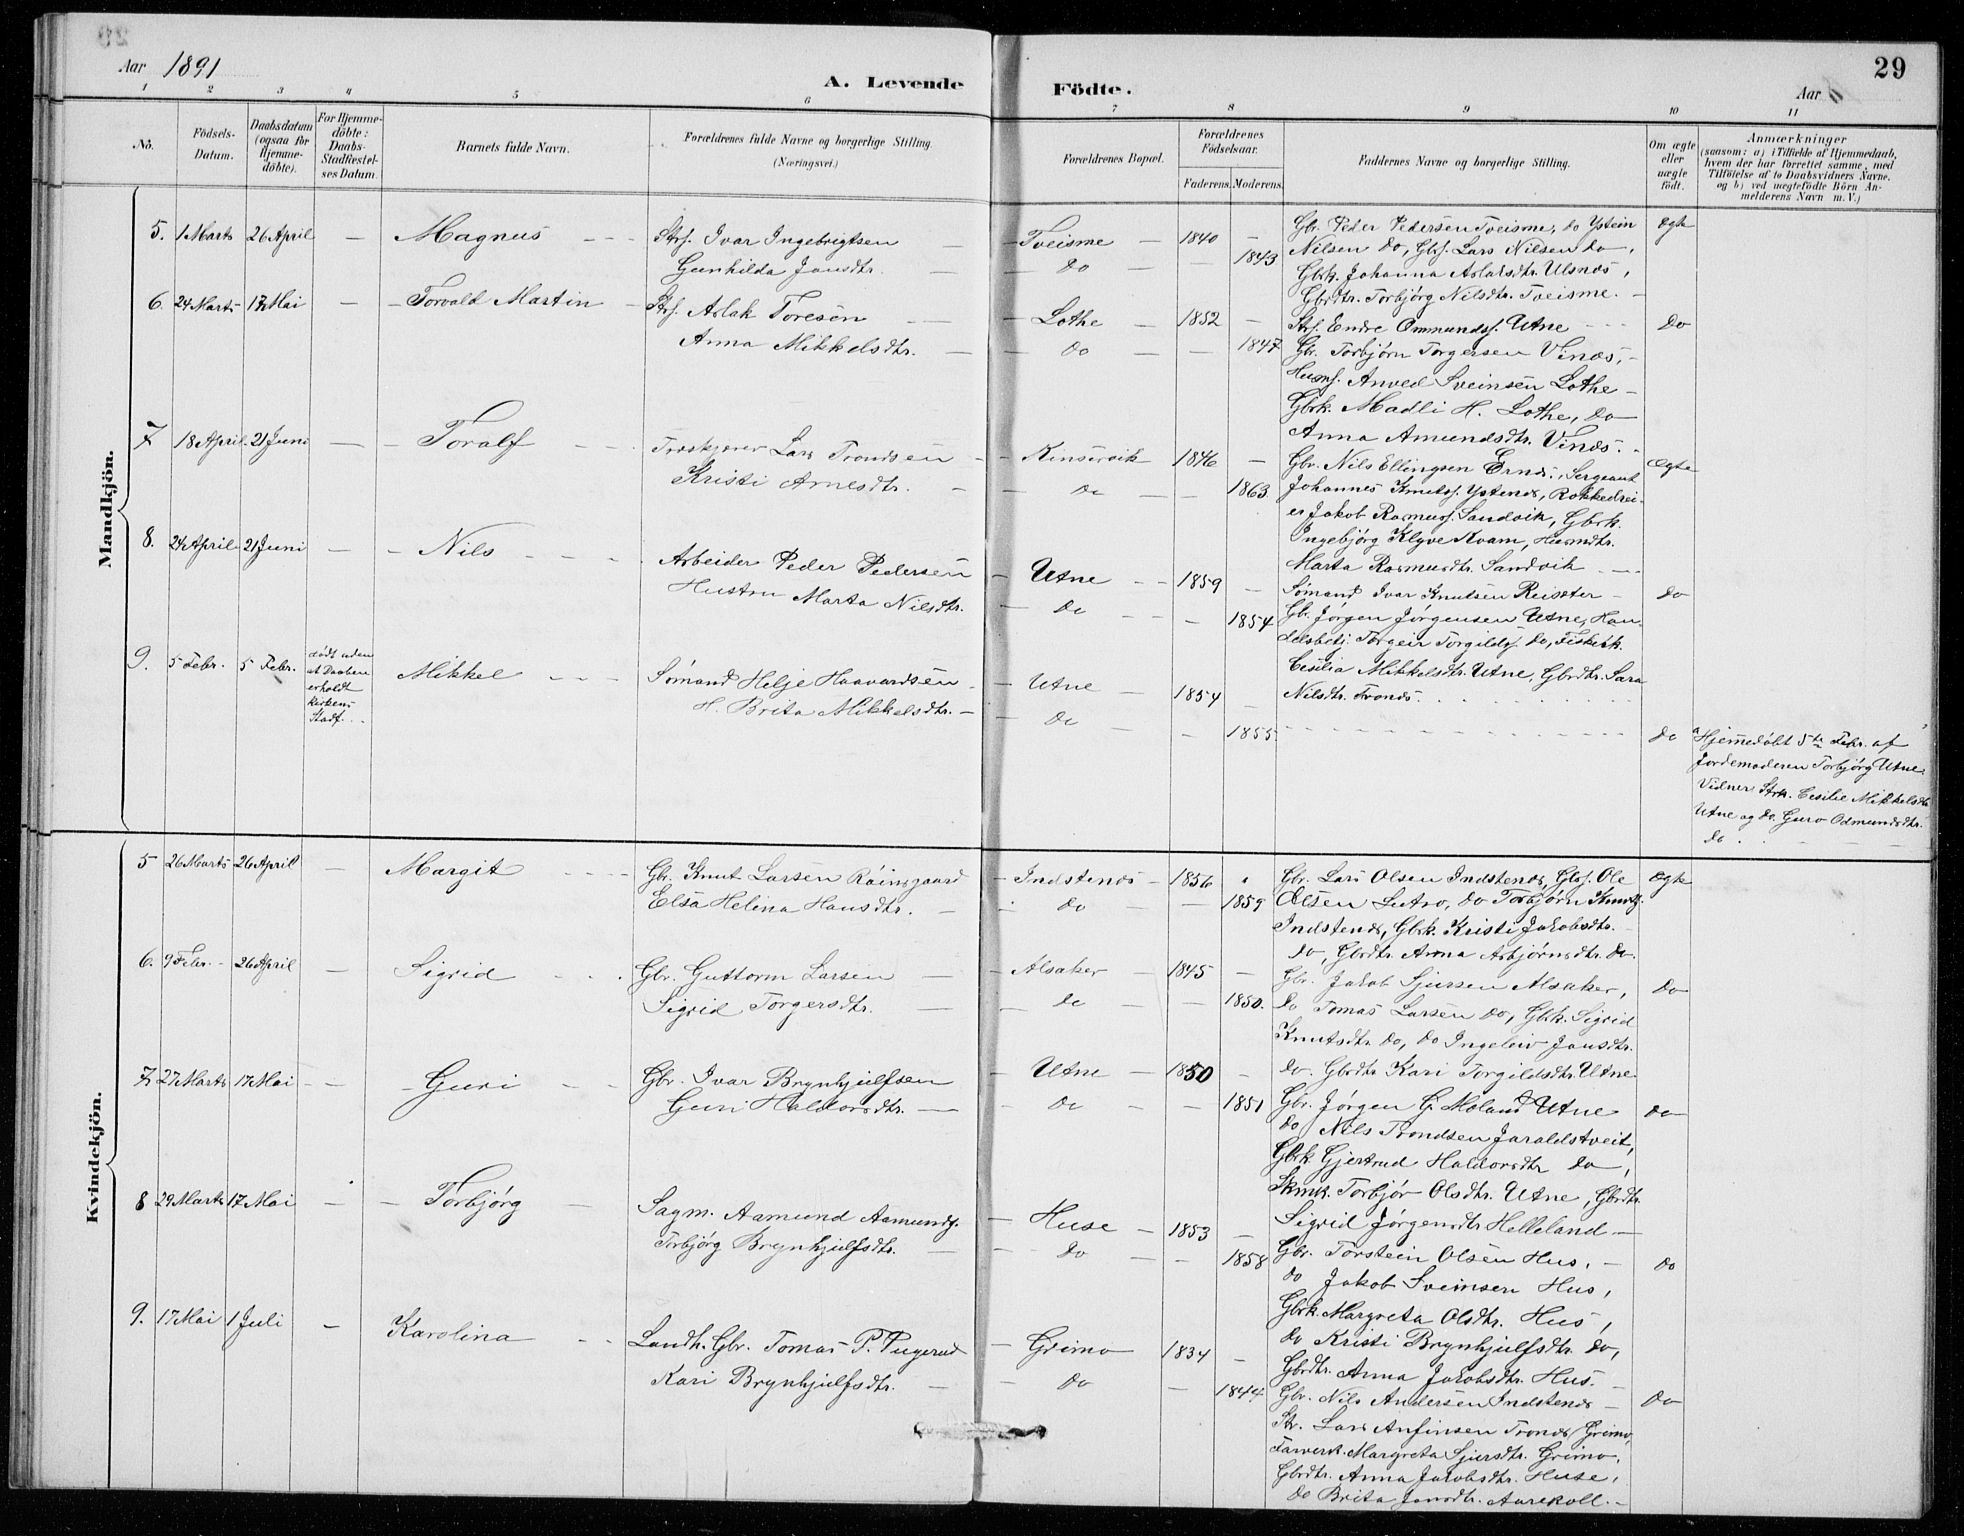 Aar 1891
A. Levende Födte.
Aar
29
1 2 3 4 5 6 7 8 9 10 11
No.
Födsels-Datum.
Daabsdatum (ogsaa for Hjemme-döbte).
For Hjemme-döbte: Daabs-Stadfæstel-ses Datum.
Barnets fulde Navn.
Forældrenes fulde Navne og borgerlige Stilling. (Næringsvei.)
Forældrenes Bopæl.
Forældrenes Födselsaar.
Faderens. Moderens.
Faddernes Navne og borgerlige Stilling.
Om ægte eller uægte födt.
Anmærkninger
(saasom: a) i Tilfælde af Hjemmedaab, hvem der har forrettet samme, med Tilföielse af to Daabsvidners Navne. og b) ved uægtefödte Börn An-melderens Navn m. V.)
Mandkjön.
5. 1 Marts 26 April — Magnus — Strf. Ivar Ingebrigtsen — Tveisme — 1840 —
Gunhilda Jansdtr. — Do — 1843
Gbr. Peder Pedersen Tveisme, do Ystein Ægte
Nilsen do, Gbrs. Lars Nilsen do,
Gbrk. Johanna Aslaksdtr. Ulsnæs,
Gbrdtr. Torbjörg Nilsdtr. Tveisme. —
6. 24 Marts 17 Mai — Torvald Martin — Strf. Aslak Toresen — Lothe — 1852 —
Anna Mikkelsdtr. — do — 1847
Strf. Endre Ommundsf. Utne — Do
Gbr. Torbjørn Torgersen Vinæs, —
Husmf. Anved Sveinsen Lothe —
Gbrk. Madli H. Lothe, do —
Anna Amundsdtr. Vinæs. —
7 18 April 21 Juni — Toralf — Træskjærer Lars Trondsen — Kinservik 1846 —
Kristi Arnesdtr. — Do — 1863
Gbr. Nils Ellingsen Ernæs, Sergeant Ægte
Johannes Knutsf. Ystenæs, Rokkedrei-
er Jakob Rasmusf. Sandvik, Gbrk.
Ingebjørg Klyve Kvam, Husmdtr.
Marta Rasmusdtr. Sandvik —
8. 24 April 21 Juni — Nils — Arbeider Peder Pedersen — Utne — 1859 —
Hustru Marta Nilsdtr. — Do — 1854
Sømand Ivar Knutsen Reisæter — Do
Gbr. Jørgen Jørgensen Utne, Han-
delsbetj. Torgeir Torgildsf. do, Fiskerk.
Cesilia Mikkelsdtr. Utne, Gbrdtr. Sara
Nilsdtr. Tronæs.
9. 5 Febr. 5 Febr. dødt uden at Daaben erholdt Kirkens Stadf. Mikkel — Sømand Helje Haavardsen — Utne — 1854 —
H. Brita Mikkelsdtr. — Do — 1855 Do
Hjemedøbt 5te Febr. af
Jordemoderen Torbjørg Utne.
Vidner Strk. Cesilie Mikkelsdtr
Utne og do. Guro Odmundsdtr.
Do
Kvindekjön.
5 26 Marts 26 April — Margit — Gbr. Knut Larsen Röinsgaard — Indstenæs — 1856
Elsa Helina Hansdtr. — do — 1859
Gbr. Lars Olsen Indstenæs, Gbsf. Ole Ægte
Olsen Lutro, do Torbjørn Knutsf.
Indstenæs, Gbrk. Kristi Jakobsdtr.
do, Gbrdtr. Anna Asbjørnsdtr. do.
6. 9 Febr. 26 April — Sigrid — Gbr. Guttorm Larsen — Alsaker 1845 —
Sigrid Torgersdtr. — do — 1850.
Gbr. Jakob Sjursen Alsaker, Do
do Tomas Larsen do, Gbrk. Sigrid
Knutsdtr. do, do Ingeleiv Jansdtr.
do. Gbrdtr Kari Torgildsdtr. Utne
7. 27 Marts 17 Mai — Guri — Gbr. Ivar Brynhjulfsen — Utne — 1850 —
Guri Haldorsdtr. — Do — 1851
Gbr. Jørgen G. Moland Utne Do
do Nils Trondsen Jaraldstveit,
Gbrk. Gjertrud Haldorsdtr do,
Skmk. Torbjør Olsdtr. Utne, Gbrdtr.
Sigrid Jørgensdtr Helleland —
8 29 Marts 17 Mai — Torbjörg — Sagm. Aamund Aamundsf. — Huse — 1853 —
Torbjörg Brynhjulfsdtr. — Do — 1858
Gbr. Torstein Olsen Hus, — Do
do Jakob Sveinsen Hus,
Gbrk. Margreta Olsdtr. Hus,
do Kristi Brynhjulfsdtr. do,
Gbrdtr. Anna Jakobsdtr. Hus. —
9. 17 Mai 1 Juli — Karolina — Landh. Gbr. Tomas P. Pugerud — Grimo — 1834 —
Kari Brynhjulfsdtr. — Do — 1844
Gbr. Nils Andersen Indstenæs — Do
Str. Lars Anfinsen Tronæs Grimo,
Farverk. Margreta Sjursdtr. Grimo,
Gbrdtr. Anna Jakobsdtr. Huse,
do Brita Jansdtr. Aurekoll. —